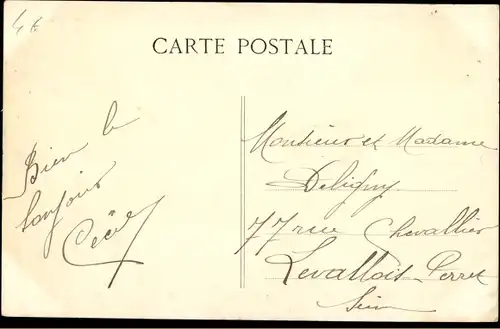 CARTE POSTALE
Bien le
bonjour
Cécile
Monsieur et Madame
Deligny
77 rue Chevallier
Levallois-Perret
Seine